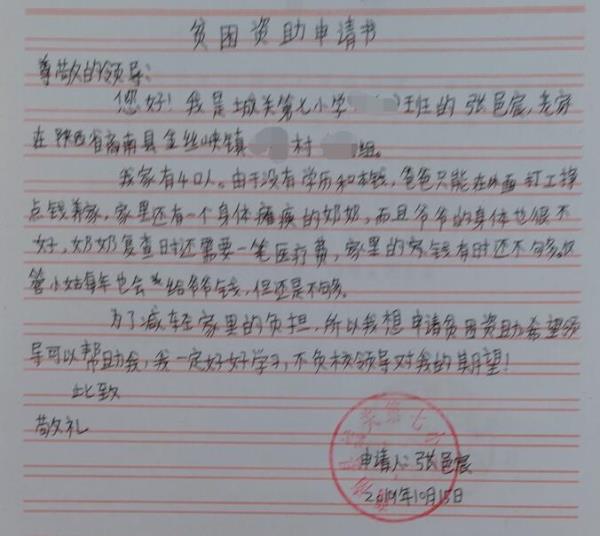 贫困资助申请书
尊敬的领导:
您好!我是城关第七小学 班的 张邑宸,老家
在陕西省商南县金丝峡镇 村 组。
我家有4口人。由于没有学历和本钱,爸爸只能在外面打工挣
点钱养家,家里还有一个身体瘫痪的奶奶,而且爷爷的身体也很不
好,奶奶复查时还需要一笔医疗费,家里的 钱有时还不够。尽
管小姑每年也会 给爷爷钱,但还是不够。
为了减轻家里的负担,所以我想申请贫困资助希望领
导可以帮助我,我一定好好学习,不负 领导对我的期望!
此致
敬礼
申请人:张邑宸
2019年10月15日
关第七